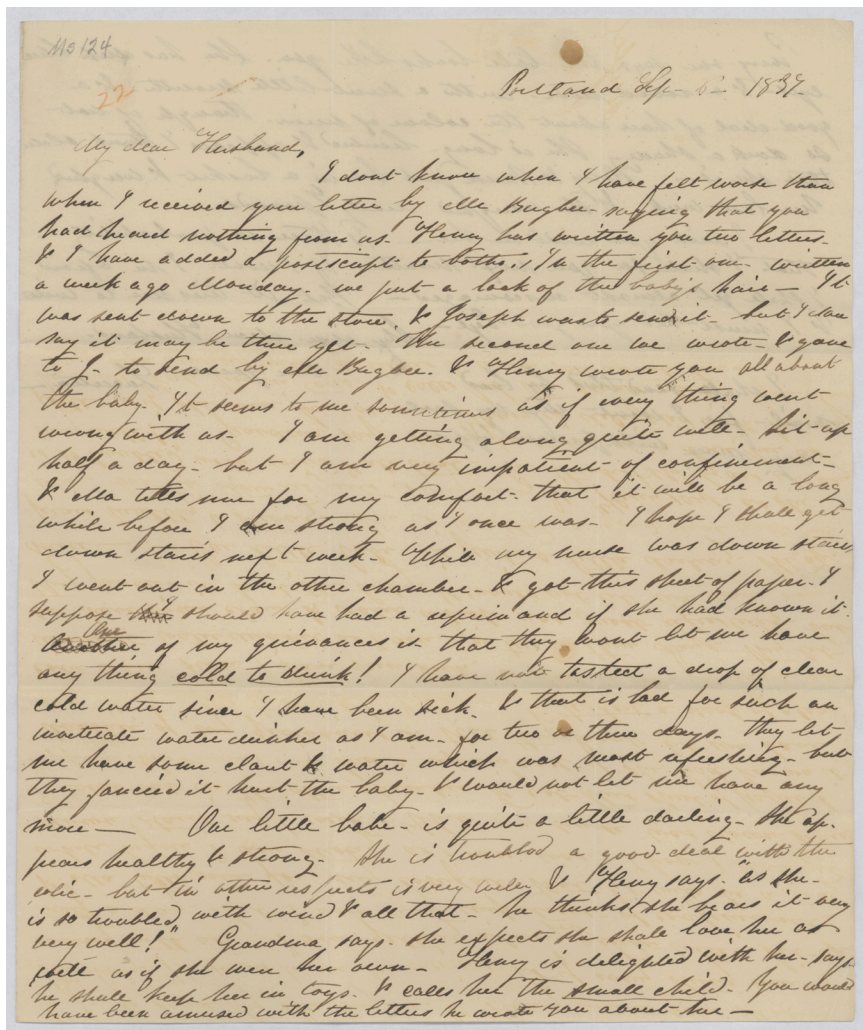 Ms 124
22
Portland Sep. 5th 1837.
My dear Husband,
I dont know when I have felt worse than
when I received your letter by Mr Bugbee - saying that you
had heard nothing from us. Henry has written you two letters.
& I have added a postscript to both. In the first one - written
a week ago Monday. we put a lock of the baby's hair — It
was sent down to the store, & Joseph was to send it - but I dare
say it may be there yet. The second one we wrote - & gave
to J- to send by Mr Bugbee. & Henry wrote you all about
the baby. It seems to me sometimes as if every thing went
wrong with us - I am getting along quite well - Sit up
half a day - but I am very impatient of confinement -
& Ma tells me for my comfort - that it will be a long
while before I am strong as I once was - I hope I shall get
down stairs next week - While my nurse was down stairs,
I went out in the other chamber - & got this sheet of paper - I
suppose I should have had a reprimand if she had known it.
One of my grievances is that they wont let me have
any thing cold to drink! I have not tasted a drop of clear
cold water since I have been sick. & that is bad for such an
inveterate water drinker as I am - for two or three days - they let
me have some claret & water which was most refreshing - but
they fancied it hurt the baby - & would not let me have any
more — Our little babe - is quite a little darling - She ap-
pears healthy & strong - She is troubled a good deal with the
colic - but in other respects is very well & Henry says - "as she
is so troubled with wind & all that - he thinks she bears it very
very well!" Grandma says - she expects she shall love her as
well as if she were her own - Henry is delighted with her - says
he shall keep her in toys - & calls her the small child - You would
have been amused with the letters he wrote you about her —